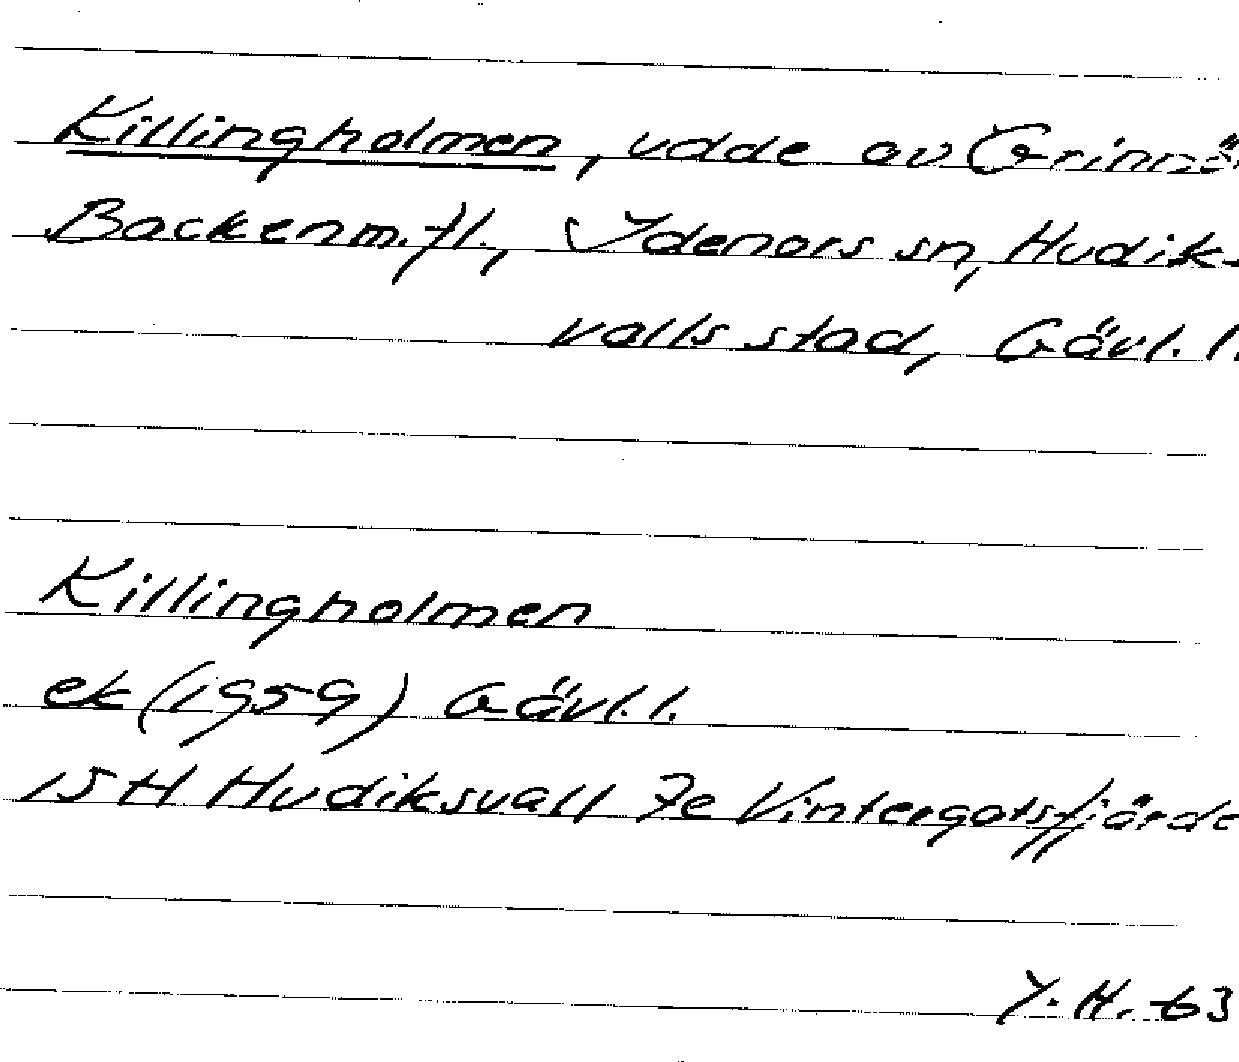 Killingholmen, udde av Grinnö
Backen m.fl., Idenors sn, Hudik-
valls stad, Gävl. l.
Killingholmen
ek (1959) Gävl. l.
15 H Hudiksvall 7e Vintergatsfjärde
Y.H. 63